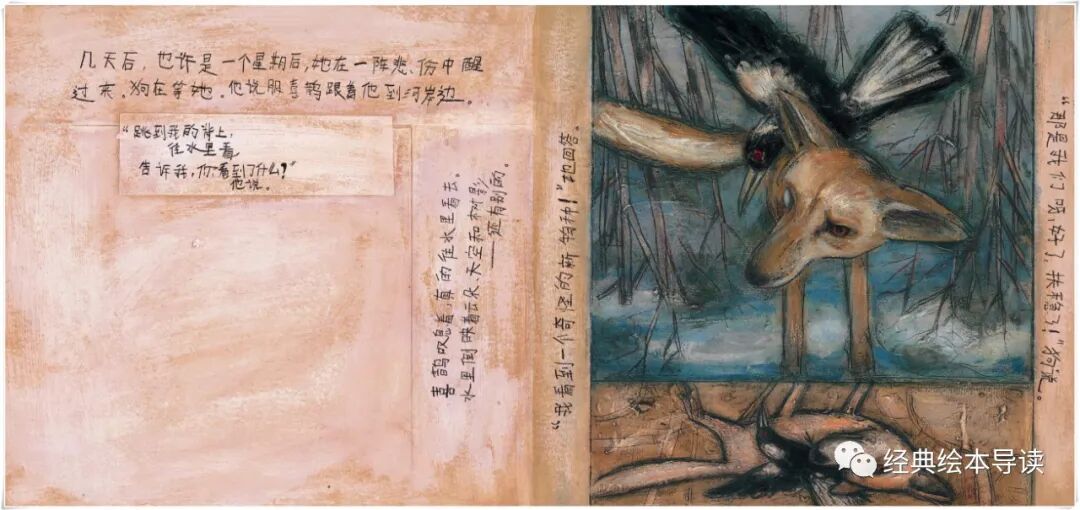 几天后，也许是一个星期后，她在一阵悲伤中醒
过来。狗在等她。他说服喜鹊跟着他到河岸边。
“跳到我的背上，
往水里看，
告诉我，你看到了什么？”
他说。
喜鹊叹息着，真的往水里看去。
水里倒映着云朵、天空和树影
——还有别的。
“我看到一个奇怪的新物种！”她回答。
“那是我们呀，好了，扶稳了！”狗说。
经典绘本导读